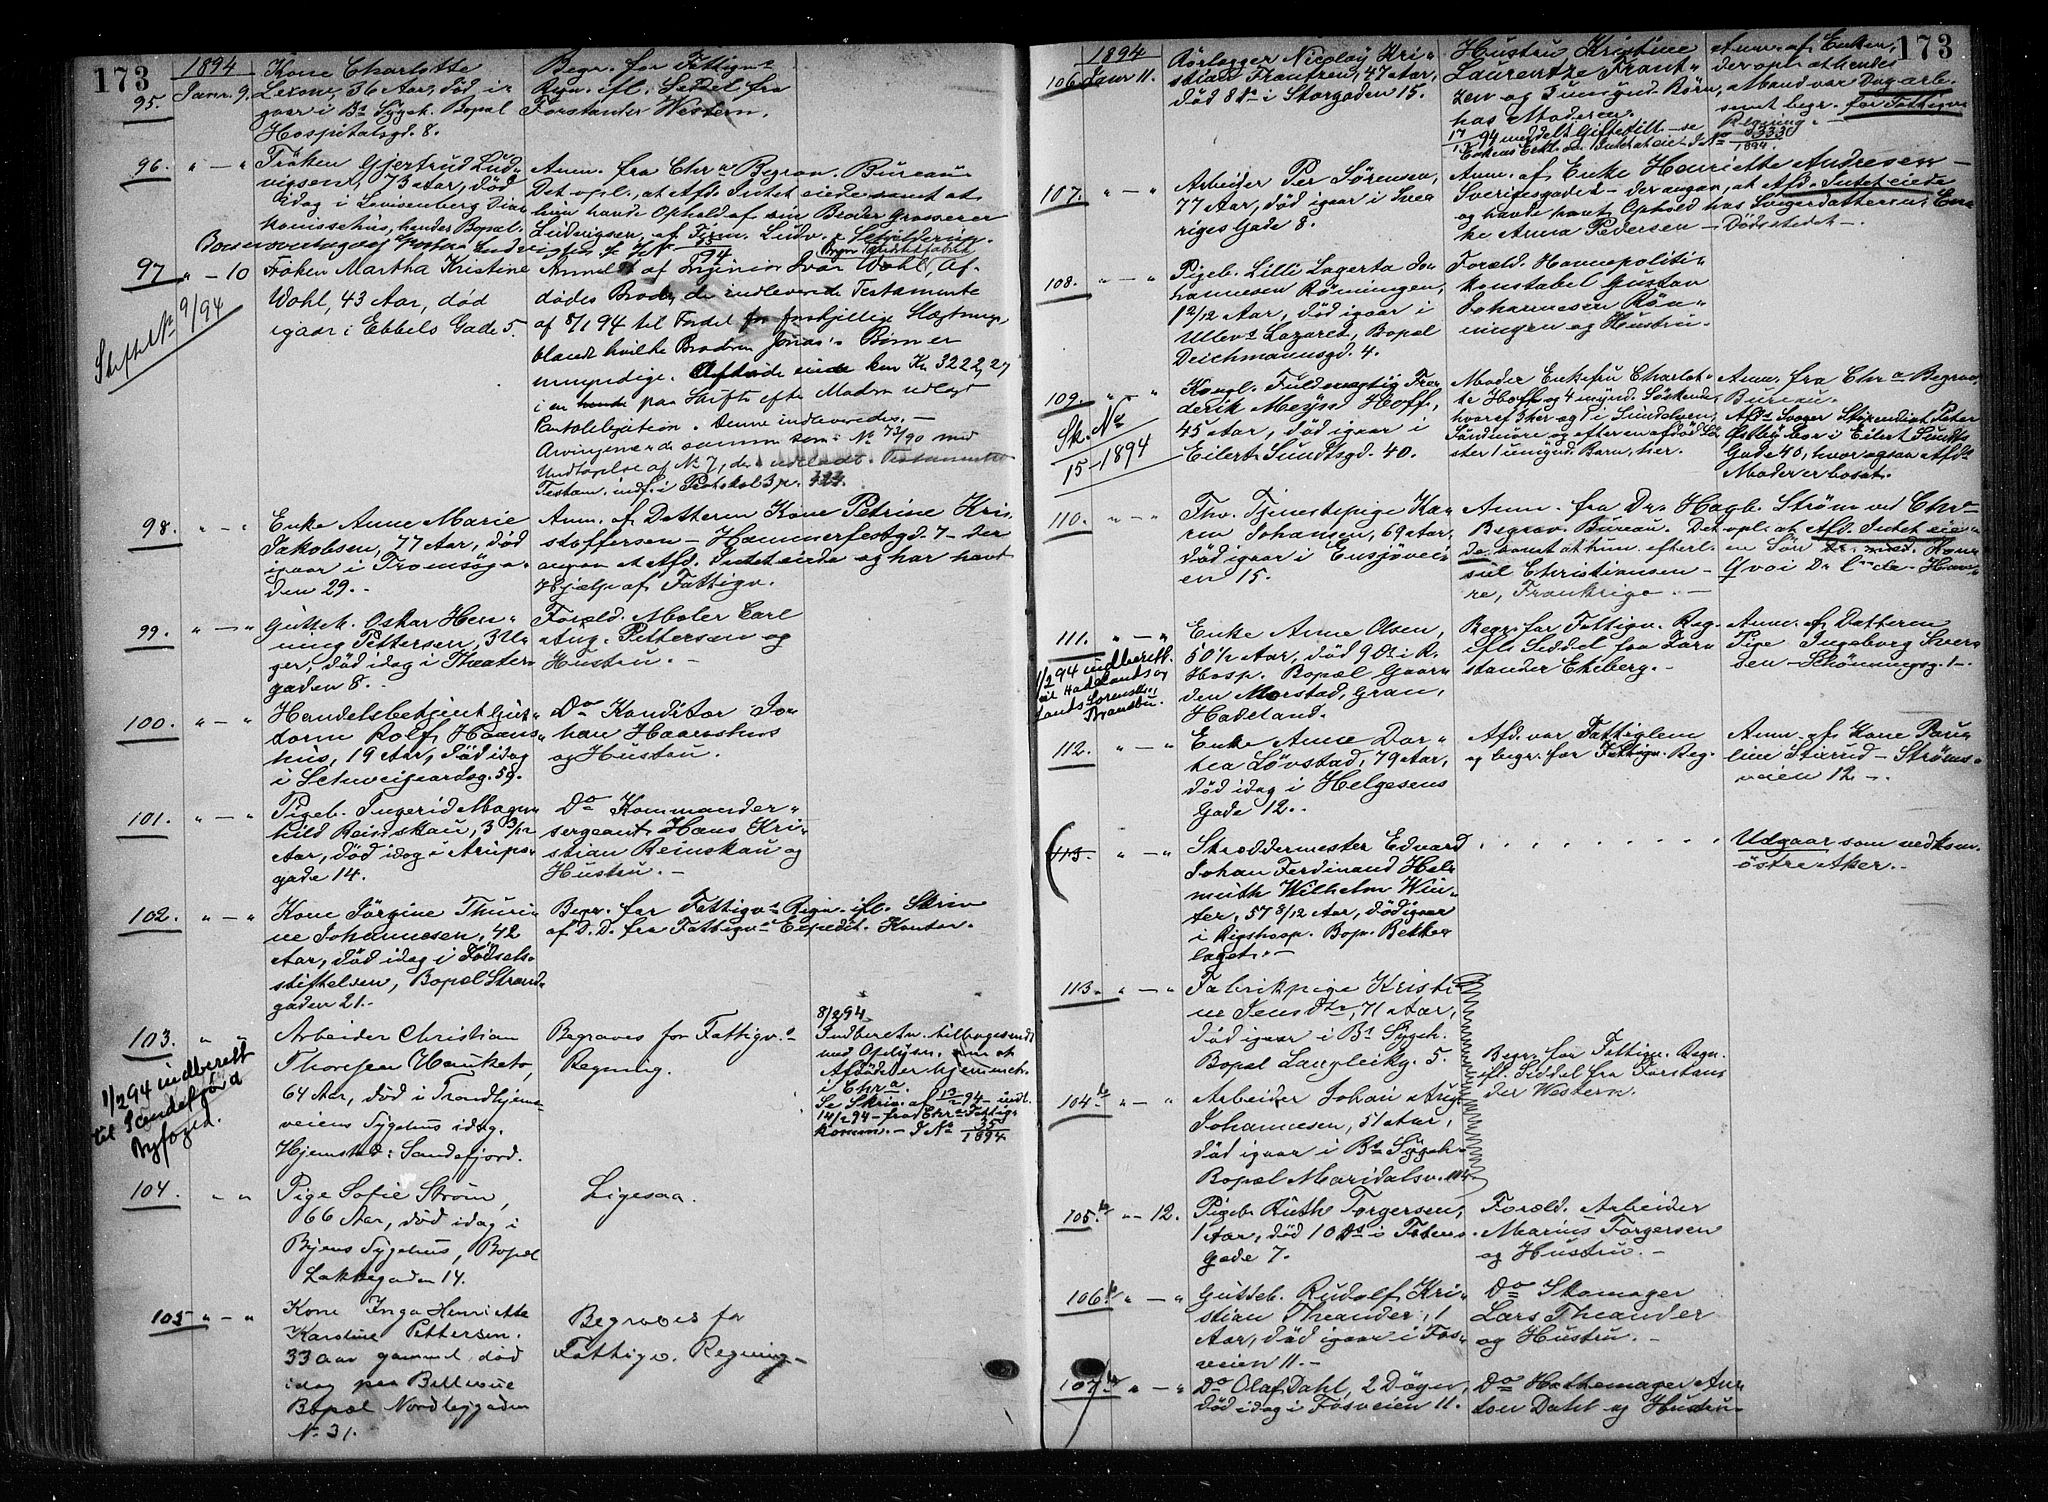 173
1894
Janr. 9.
95.
Kone Charlotte
Lexone, 36 Aar, død i-
gaar i Bs Sygeh. Bopæl
Hospitalsgd. 8.
Begr. for Fattigvs
Regn. ifl. Seddel fra
Forstander Western.
96.
" — "
Frøken Gjertrud Lud-
vigsen, 73 Aar, død
idag i Lovisenberg Diak
honissehus, hendes Bopæl.
Anm. fra Chra Begrav. Bureau
Det opl. at Afd. Intet eiede samt at
hun havde Ophold af sin Broder Grosserer
Ludvigsen, af Firm. Ludv. & Schjelderup.
97
" — 10
Skiftet No 9/94
Frøken Martha Kristine
Wohl, 43 Aar, død
igaar i Ebbels Gade 5.
Anmeldt af Ingeniør Ivar Wohl, Af-
dødes Broder, der indleverede Testamente
af 8/1 94 til Fordel for forskjellige Slægtninge,
blandt hvilke Broderen Jonas's Børn er
umyndige. Afdøde eiede kun Kr. 3222,27
i en hende paa Skifte efter Modren udlagt
Pantobligation. Denne indleveredes. —
Arvingerne er de samme som i No 73/90 med
Undtagelse af No 7,
Testam. indf. i Protokol 3 p. 323.
98.
" — "
Enke Anne Marie
Jakobsen, 77 Aar, død
igaar i Tromsøga-
den 29.—
Anm. af Datteren Kone Petrine Kri-
stoffersen — Hammerfestgd. 7 — der
angav at Afd. Intet eiede og har havt
Hjælp af Fattigv.
99.
" — "
Gutteb. Oskar Hen-
ning Pettersen, 3 U-
ger, død idag i Theater-
gaden 8.—
Foræld. Maler Carl
Aug. Pettersen og
Hustru.—
100.
" — "
Handelsbetjent Gut-
dorm Rolf Haans-
hus, 19 Aar, død idag
i Schweigaardsg. 59.
Do Konditor Jo-
han Haanshus
og Hustru.
101.
" — "
Pigeb. Ingerid Magn-
hild Reinskau, 3 3/12
Aar, død idag i Arups-
gade 14.
Do Kommander-
sergeant Hans Kri-
stian Reinskau og
Hustru.—
102.
" — "
Kone Jørgine Thuri-
ne Johannesen, 42
Aar, død idag i Fødsels-
stiftelsen, Bopæl Strand-
gaden 21.—
Begr. for Fattigvs Regn. ifl. Skriv.
af D. D. fra Fattigvs Expedit. Kontor.
103.
"
1/2 94 indberett
til Sandefjord
Byfoged.
Arbeider Christian
Thoresen Hauketo,
64 Aar, død i Trondhjems-
veiens Sygehus idag.
Hjemsted: Sandefjord.
Begraves for Fattigv.s
Regning.
8/2 94
Indberetn. tilbagesendt
med Oplysn. om at
Afdøde er hjemmeh.
i Chra.
Se Skriv. af 13/2 94 — indt.
14/2 94 — fra Chra Fattig-
komm. — J No 35/1894
104.
" "
Pige Sofie Strøm,
66 Aar, død idag i
Byens Sygehus, Bopæl
Lakkegaden 14.
Ligesaa.
105
" — "
Kone Inga Henriette
Karstine Pettersen.
33 aar gammel, død
idag paa Bellevue
Bopæl Nordbygaden
No 31.
Begraves for
Fattigv. Regning—
173
1894
106
Janr 11.
Rørlægger Nicolay Kri-
stian Frantzen, 47 Aar,
død 8 ds i Storgaden 15.
Hustru Kristine
Laurentze Frant-
zen og 7 umynd. Børn,
hos Moderen.
Anm. af Enken,
der opl. at hendes
Mand var Dagarb.
samt begr. for Fattigvs
Regning.
107.
" — "
Arbeider Per Sørensen,
77 Aar, død igaar i Svea
riges Gade 8.
Anm. af Enke Henriette Andresen —
Sverigesgade 8 — der angav, at Afd. Intet eiede
og havde havt Ophold hos Svigerdatteren, En-
ke Anna Pedersen — Dødsstedet—.
108.
" — "
Pigeb. Lilli Lagerta Jo-
hannesen Røningen,
1 2/12 Aar, død igaar i
Ullevs Lazaret, Bopæl
Deichmannsgd. 4.
Foræld. Havnepoliti-
konstabel Gustav
Johannesen Røn-
ningen og Hustru.
109.
" — "
Sk. No
15 — 1894
Kongl. Fuldmægtig Fre-
derik Meyn Hoff,
45 Aar, død igaar i
Eilert Sundtsgd. 40.
Moder Enkefru Charlot-
te Hoff og 4 mynd. Søskende,
hvoraf 3 her og 1 i Sundalven,
Søndmøre og efter en afdød Sø-
ster 1 umynd. Barn, her.
Anm. fra Chra Begrav.
Bureau.
Afds Svoger Skibsredigt Peter
Østbye bor i Eilert Sundts
Gade 40, hvor ogsaa Afds
Moder er bosat.
110.
" — "
Fhv. Tjenestepige Ka-
ren Johansen, 69 Aar,
død igaar i Ensjøvei-
en 15.
Anm. fra Dr. Hagb. Strøm ved Chra
Begrav. Bureau. Det opl. at Afd. Intet eie-
de samt at hun efterl. en Søn
sul Christiansen —
re, Frankrige.—
111.
" — "
1/2 94 indberett.
til Hadelands og
Lands Sorenskr.,
Brandbu.
Enke Anne Olsen,
50 1/2 Aar, død 9 ds i R.
Hosp. Bopæl Gaar-
den Morstad, Gran,
Hadeland.
Begr. for Fattigv. Reg-
ifl. Seddel fra Forn
stander Ekeberg.—
Anm. af Datteren
Pige Ingeborg Sven
den — Schønningsg. 1—.
112.
" — "
Enke Anne Dor-
thea Løvstad, 79 Aar,
død idag i Helgesens
Gade 12.—
Afd. var Fattiglem
og begr. for Fattigv. Reg.
Anm. af Kone Pau-
line Sturud — Strøms-
veien 12.—.
113.
" — "
Skræddermester Edvard
Johan Ferdinand Hel-
muth Wilhelm Win-
ter, 57 8/12 Aar, død igaar
i Rigshosp. Bop. Bekke-
laget.—
Udgaar som vedkom.
østre Aker.—
113.
" — "
Fabrikpige Kristi-
ne Jensdtr, 71 Aar,
død igaar i Bs Sygeh.
Bopæl Langleikg. 5.
Begr. for Fattigv. Regn.
ifl. Seddel fra Forstan-
der Western.
104 b
" — "
Arbeider Johan Aug.
Johannesen, 51 Aar,
død igaar i Bs Sygeh.
Bopæl Maridalsv.
105 b
" — 12.
Pigeb. Ruth Torgersen,
1 Aar, død 10 ds i Totens-
Gade 7.
Foræld. Arbeider
Marius Torgersen
og Hustru.—
106 b
" — "
Gutteb. Rudolf Kri-
stian Theander, 1
Aar, død igaar i Fos-
veien 11.—
Do Skomager
Lars Theander
og Hustru.—
107 b
" — "
Do Olaf Dahl, 2 Døgn,
død idag i Fosveien 11.
Do Hattemager An-
ton Dahl og Hustru—